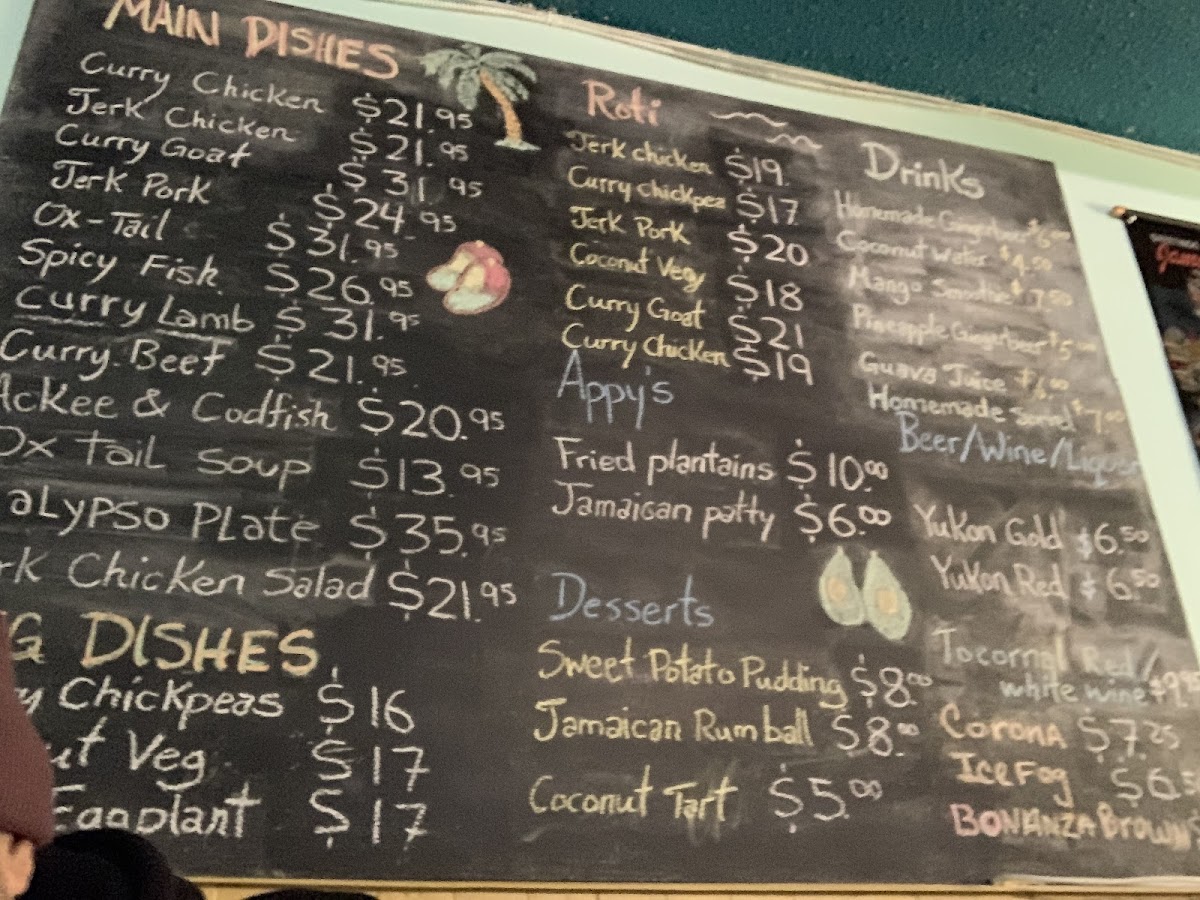 MAIN DISHES
Curry Chicken $21.95
Jerk Chicken $21.95
Curry Goat $31.95
Jerk Pork $24.95
Ox-Tail $31.95
Spicy Fish $26.95
Curry Lamb $31.95
Curry Beef $21.95
Ackee & Codfish $20.95
Ox Tail Soup $13.95
alypso Plate $35.95
rk Chicken Salad $21.95
G DISHES
y Chickpeas $16
ut Veg $17
Eggplant $17
Roti
Jerk chicken $19
Curry chickpea $17
Jerk Pork $20
Coconut Vegy $18
Curry Goat $21
Curry Chicken $19
Appy's
Fried plantains $10.00
Jamaican patty $6.00
Desserts
Sweet Potato Pudding $8.00
Jamaican Rum ball $8.00
Coconut Tart $5.00
Drinks
Homemade Gingerbeer
Coconut Water $4.50
Mango Smoothie $7.50
Pineapple Gingerbeer $5
Guava Juice
Homemade Sorrel $7.00
Beer/Wine/Liquor
Yukon Gold $6.50
Yukon Red $6.50
Tocornal Red/
white wine
Corona $7.25
Ice Fog $6.5
Bonanza Brown